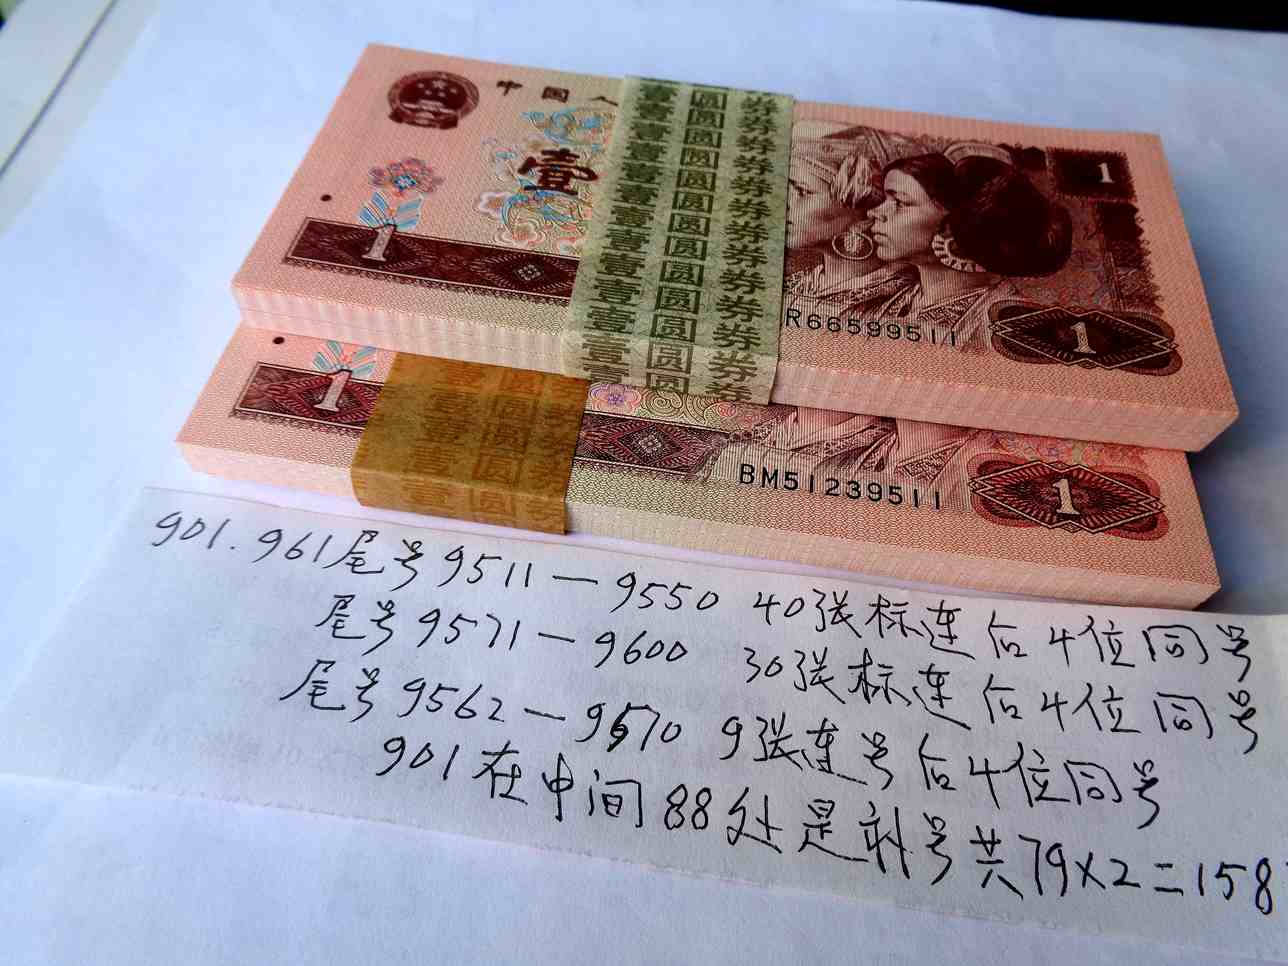 中国人
壹
1
1
壹圆券
R66599511
1
1
壹圆券
BM51239511
1
901.961尾号9511—9550 40张标连后4位同号
尾号9571—9600 30张标连后4位同号
尾号9562—9570 9张连号后4位同号
901在中间88处是补号共79×2=158